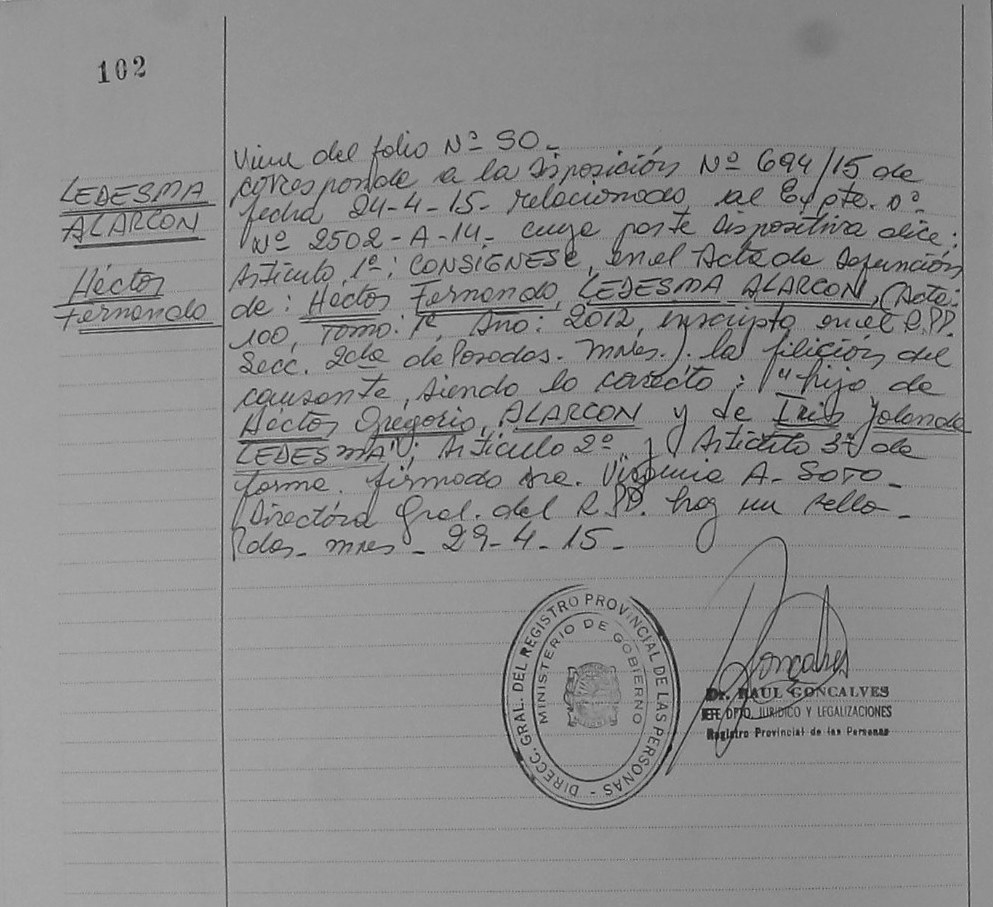 102
LEDESMA
ALARCON
Héctor
Fernando
Viene del folio Nº 90.-
Corresponde a la Disposición Nº 694/15 de
fecha 24-4-15- relacionado al Expte. nº.
Nº 2502-A-14,- cuya parte dispositiva dice:
Artículo 1º: CONSIGNESE, en el Acta de Defunción
de: Héctor Fernando, LEDESMA ALARCON, (Acta:
100, Tomo: 1º, Año: 2012, inscripta en el R.P.P.
Secc. 2da de Posadas. Mnes.). la filición del
causante, siendo lo correcto: "hijo de
Héctor Gregorio, ALARCON y de Iris Yolanda
LEDESMA"; Artículo 2º y Artículo 3º de
forma. firmado Dra. Virginia A. SOTO-
Directora Gral. del R.P.P. hay un sello-
Pdas- mnes- 29-4-15-
DIRECC. GRAL. DEL REGISTRO PROVINCIAL DE LAS PERSONAS -
MINISTERIO DE GOBIERNO
Goncalves
Dr. RAUL GONCALVES
JEFE DPTO. JURIDICO Y LEGALIZACIONES
Registro Provincial de las Personas